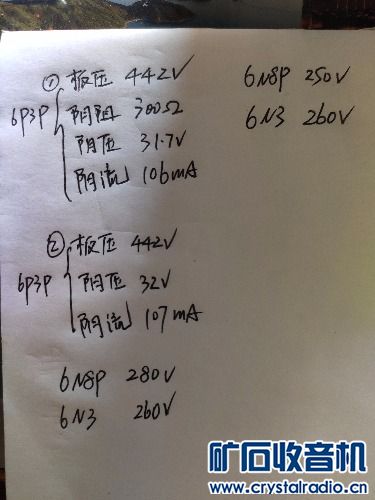 ① 板压 442V
6P3P 阴阻 300Ω
阴压 31.7V
阴流 106mA
6N8P 250V
6N3 260V
② 板压 442V
6P3P 阴压 32V
阴流 107mA
6N8P 280V
6N3 260V
矿石收音机
www.crystalradio.cn